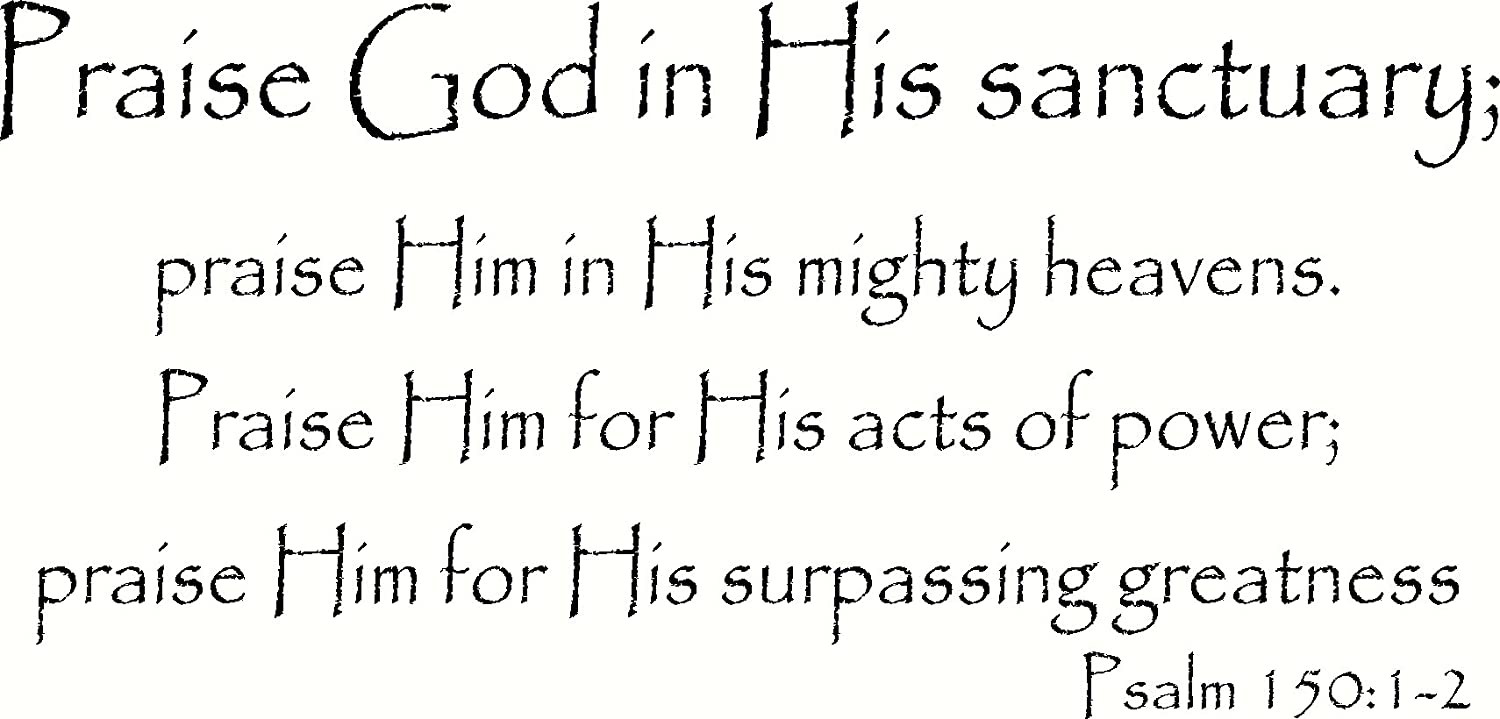 Praise God in His sanctuary;
praise Him in His mighty heavens.
Praise Him for His acts of power;
praise Him for His surpassing greatness
Psalm 150:1-2